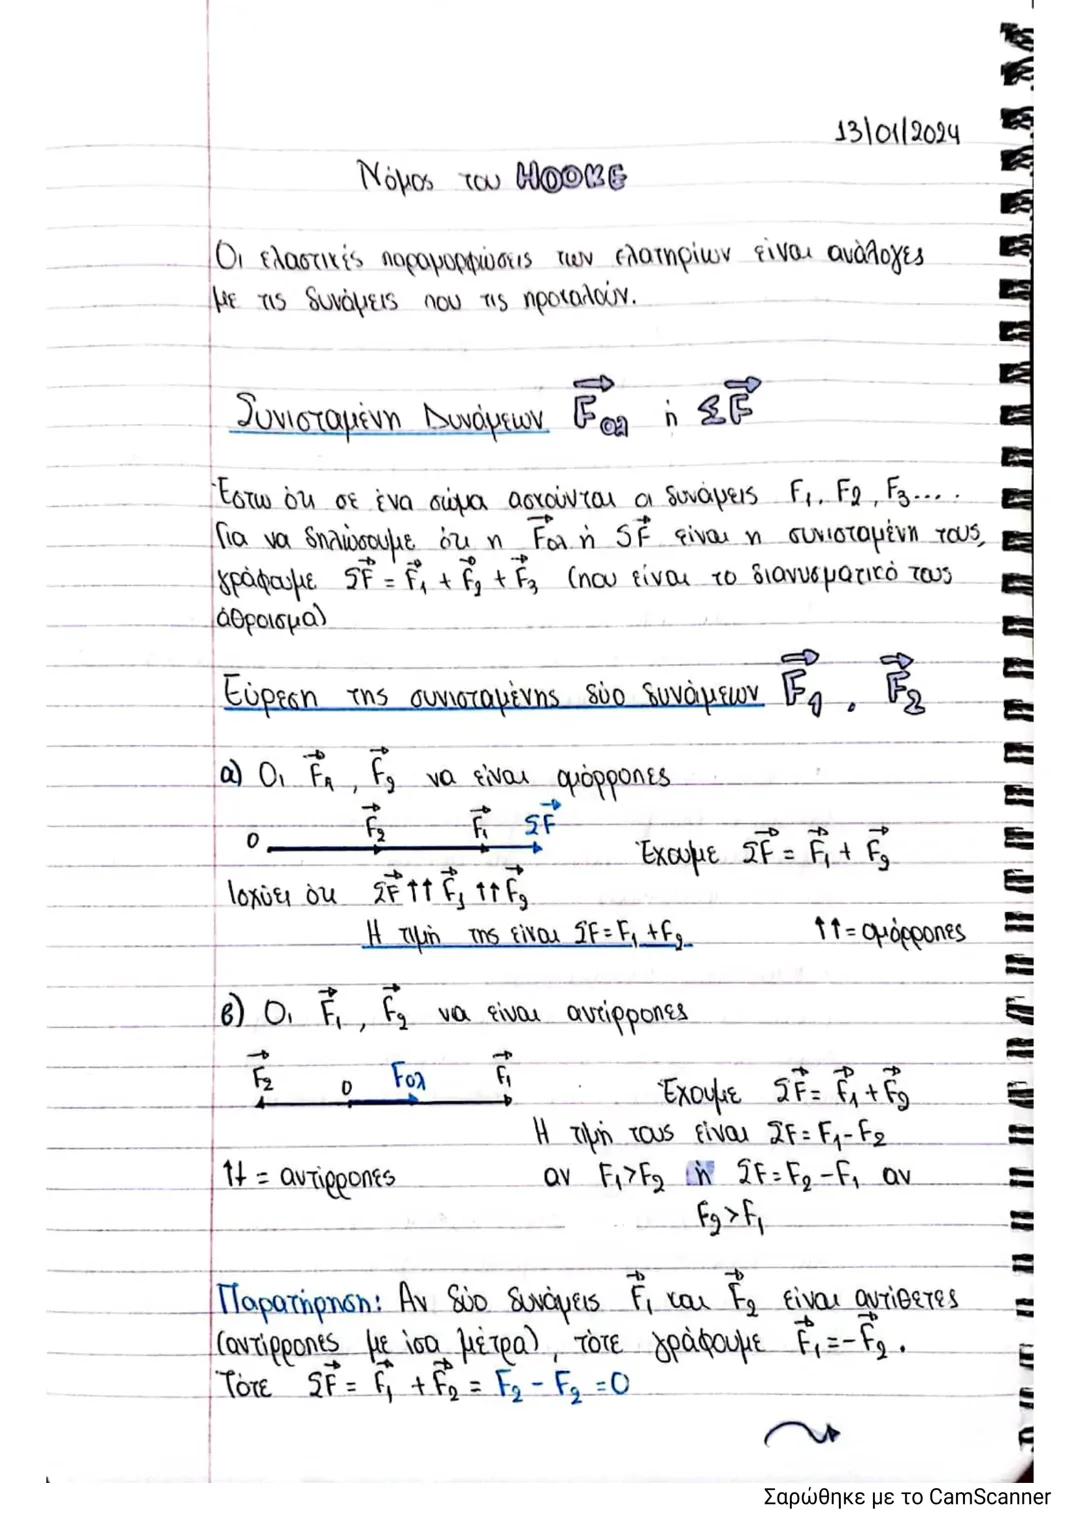 13/01/2024
Νόμος του HOOKE
Οι ελαστικές παραμορφώσεις των ελατηρίων είναι ανάλογες
με τις δυνάμεις που τις προκαλούν.
Συνισταμένη Δυνάμεων F⃗ολ ή ΣF⃗
Έστω ότι σε ένα σώμα ασκούνται οι δυνάμεις F₁, F₂, F₃....
Για να δηλώσουμε ότι η F⃗ολ ή ΣF⃗ είναι η συνισταμένη τους,
γράφουμε ΣF⃗ = F⃗₁ + F⃗₂ + F⃗₃ (που είναι το διανυσματικό τους
άθροισμα)
Εύρεση της συνισταμένης δύο δυνάμεων F⃗₁, F⃗₂
α) Οι F⃗₁, F⃗₂ να είναι ομόρροπες
0 F⃗₂ F⃗₁ ΣF⃗
Έχουμε ΣF⃗ = F⃗₁ + F⃗₂
Ισχύει ότι ΣF⃗ ↑↑ F⃗₁ ↑↑ F⃗₂
Η τιμή της είναι ΣF = F₁ + F₂
↑↑ = ομόρροπες
β) Οι F⃗₁, F⃗₂ να είναι αντίρροπες
F⃗₂ 0 Fολ F⃗₁
Έχουμε ΣF⃗ = F⃗₁ + F⃗₂
Η τιμή τους είναι ΣF = F₁ - F₂
↑↓ = αντίρροπες
αν F₁ > F₂ ή ΣF = F₂ - F₁ αν
F₂ > F₁
Παρατήρηση: Αν δύο δυνάμεις F⃗₁ και F⃗₂ είναι αντίθετες
(αντίρροπες με ίσα μέτρα), τότε γράφουμε F⃗₁ = -F⃗₂.
Τότε ΣF⃗ = F⃗₁ + F⃗₂ = F₂ - F₂ = 0
Σαρώθηκε με το CamScanner